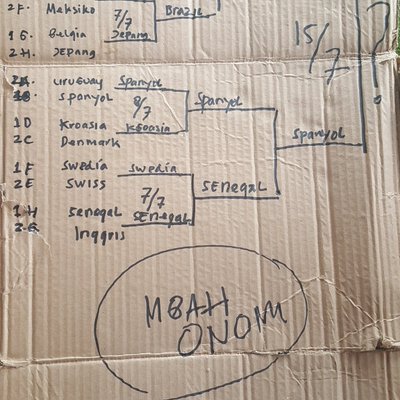 2F. Meksiko 7/7 Brazil
1G. Belgia Jepang
2H. Jepang
15/7 ?
2A. Uruguay Spanyol
1B. Spanyol 8/7 Spanyol
1D Kroasia Kroasia
2C Denmark Spanyol
1F Swedia Swedia
2E SWISS 7/7 SEnegal
1H Senegal SENegal
2G Inggris
MBAH
ONOM